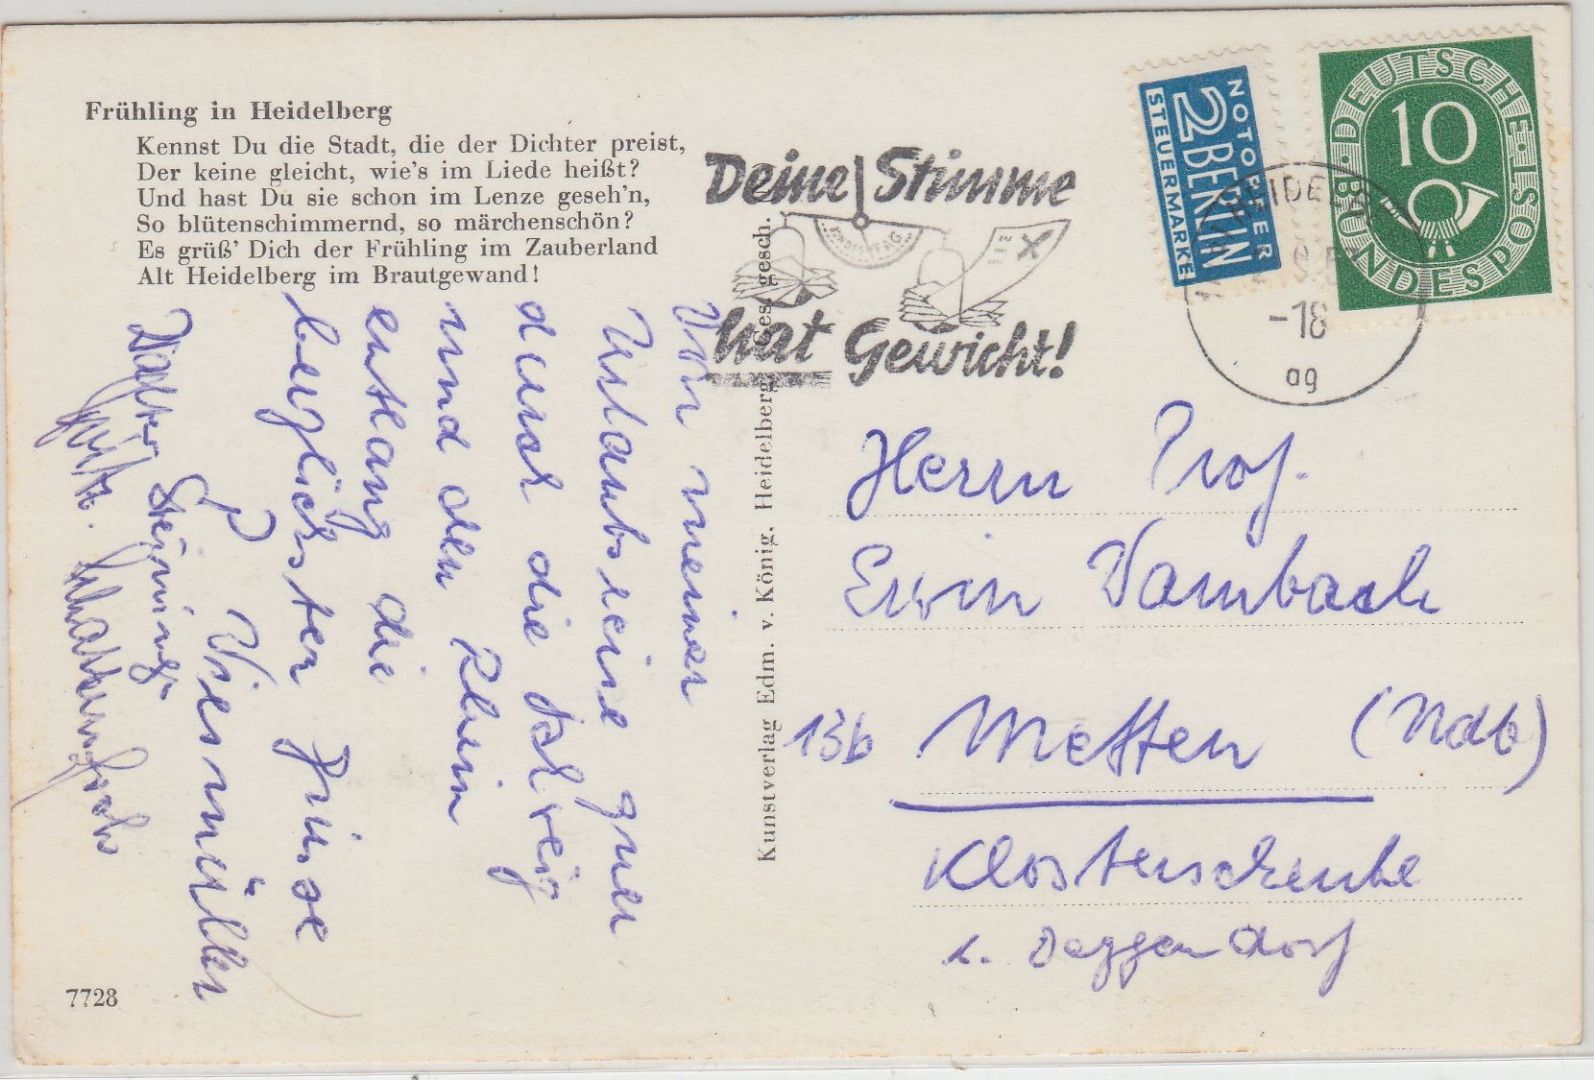 Frühling in Heidelberg
Kennst Du die Stadt, die der Dichter preist,
Der keine gleicht, wie's im Liede heißt?
Und hast Du sie schon im Lenze geseh'n,
So blütenschimmernd, so märchenschön?
Es grüß' Dich der Frühling im Zauberland
Alt Heidelberg im Brautgewand!
Deine Stimme
BUNDESTAG
hat Gewicht!
NOTOPFER
2 BERLIN
STEUERMARKE
DEUTSCHE BUNDESPOST
10
HEIDELB
-18
ag
Von meiner
Urlaubsreise quer
durch die Schweiz
und den Rhein
entlang die
herzlichsten Grüsse
Viermüller
Kunstverlag Edm. v. König, Heidelberg Ges. gesch.
Herrn Prof.
Erwin Wambach
13b Metten (Ndb)
Klosterschenke
b. Deggendorf
7728